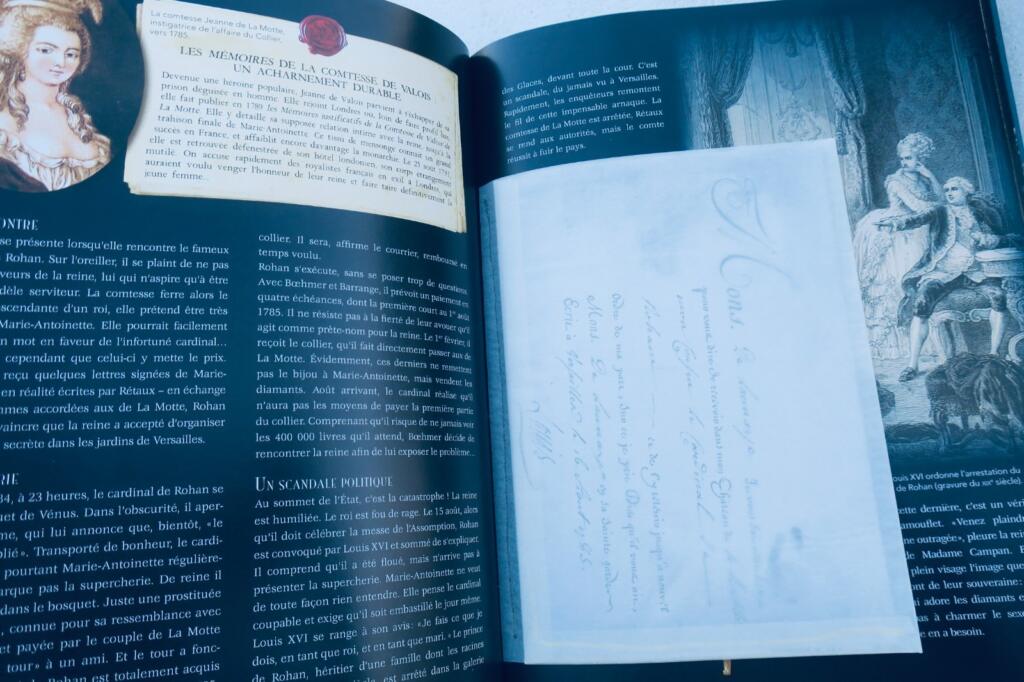 La comtesse Jeanne de La Motte,
instigatrice de l'affaire du Collier,
vers 1785.
LES MÉMOIRES DE LA COMTESSE DE VALOIS
UN ACHARNEMENT DURABLE
Devenue une héroïne populaire, Jeanne de Valois parvient à s'échapper de sa
prison déguisée en homme. Elle rejoint Londres où, loin de faire profil bas,
elle fait publier en 1789 les Mémoires justificatifs de la Comtesse de Valois de
La Motte. Elle y détaille sa supposée relation intime avec la reine, jusqu'à la
trahison finale de Marie-Antoinette. Ce tissu de mensonges connaît un grand
succès en France, et affaiblit encore davantage la monarchie. Le 23 août 1791,
elle est retrouvée défenestrée de son hôtel londonien, son corps étrangement
mutilé. On accuse rapidement des royalistes français en exil à Londres, qui
auraient voulu venger l'honneur de leur reine et faire taire définitivement la
jeune femme...
ONTRE
se présente lorsqu'elle rencontre le fameux
Rohan. Sur l'oreiller, il se plaint de ne pas
veurs de la reine, lui qui n'aspire qu'à être
dèle serviteur. La comtesse ferre alors le
scendante d'un roi, elle prétend être très
Marie-Antoinette. Elle pourrait facilement
n mot en faveur de l'infortuné cardinal...
cependant que celui-ci y mette le prix.
reçu quelques lettres signées de Marie-
en réalité écrites par Rétaux – en échange
mmes accordées aux de La Motte, Rohan
vaincre que la reine a accepté d'organiser
secrète dans les jardins de Versailles.
RIE
84, à 23 heures, le cardinal de Rohan se
uet de Vénus. Dans l'obscurité, il aper-
me, qui lui annonce que, bientôt, « le
blié ». Transporté de bonheur, le cardi-
pourtant Marie-Antoinette régulière-
arque pas la supercherie. De reine il
dans le bosquet. Juste une prostituée
, connue pour sa ressemblance avec
et payée par le couple de La Motte
tour » à un ami. Et le tour a fonc-
Rohan est totalement acquis
collier. Il sera, affirme le courrier, remboursé en
temps voulu.
Rohan s'exécute, sans se poser trop de questions.
Avec Bœhmer et Barrange, il prévoit un paiement en
quatre échéances, dont la première court au 1er août
1785. Il ne résiste pas à la fierté de leur avouer qu'il
agit comme prête-nom pour la reine. Le 1er février, il
reçoit le collier, qu'il fait directement passer aux de
La Motte. Évidemment, ces derniers ne remettent
pas le bijou à Marie-Antoinette, mais vendent les
diamants. Août arrivant, le cardinal réalise qu'il
n'aura pas les moyens de payer la première partie
du collier. Comprenant qu'il risque de ne jamais voir
les 400 000 livres qu'il attend, Bœhmer décide de
rencontrer la reine afin de lui exposer le problème...
UN SCANDALE POLITIQUE
Au sommet de l'État, c'est la catastrophe ! La reine
est humiliée. Le roi est fou de rage. Le 15 août, alors
qu'il doit célébrer la messe de l'Assomption, Rohan
est convoqué par Louis XVI et sommé de s'expliquer.
Il comprend qu'il a été floué, mais n'arrive pas à
présenter la supercherie. Marie-Antoinette ne veut
de toute façon rien entendre. Elle pense le cardinal
coupable et exige qu'il soit embastillé le jour même.
Louis XVI se range à son avis : « Je fais ce que je
dois, en tant que roi, et en tant que mari. » Le prince
de Rohan, héritier d'une famille dont les racines
siècle, est arrêté dans la galerie
des Glaces, devant toute la cour. C'est
un scandale, du jamais vu à Versailles.
Rapidement, les enquêteurs remontent
le fil de cette impensable arnaque. La
comtesse de La Motte est arrêtée, Rétaux
se rend aux autorités, mais le comte
réussit à fuir le pays.
Mons. Le
pour vous dire de recevoir dans mon
Mons. De en sa sainte garde
Ecrit à Versailles le
Louis XVI ordonne l'arrestation du
de Rohan (gravure du XIXe siècle).
cette dernière, c'est un véri
amouflet. « Venez plaindr
ne outragée », pleure la rein
de Madame Campan. E
plein visage l'image que
ont de leur souveraine :
i adore les diamants e
pas à charmer le sexe
e en a besoin.